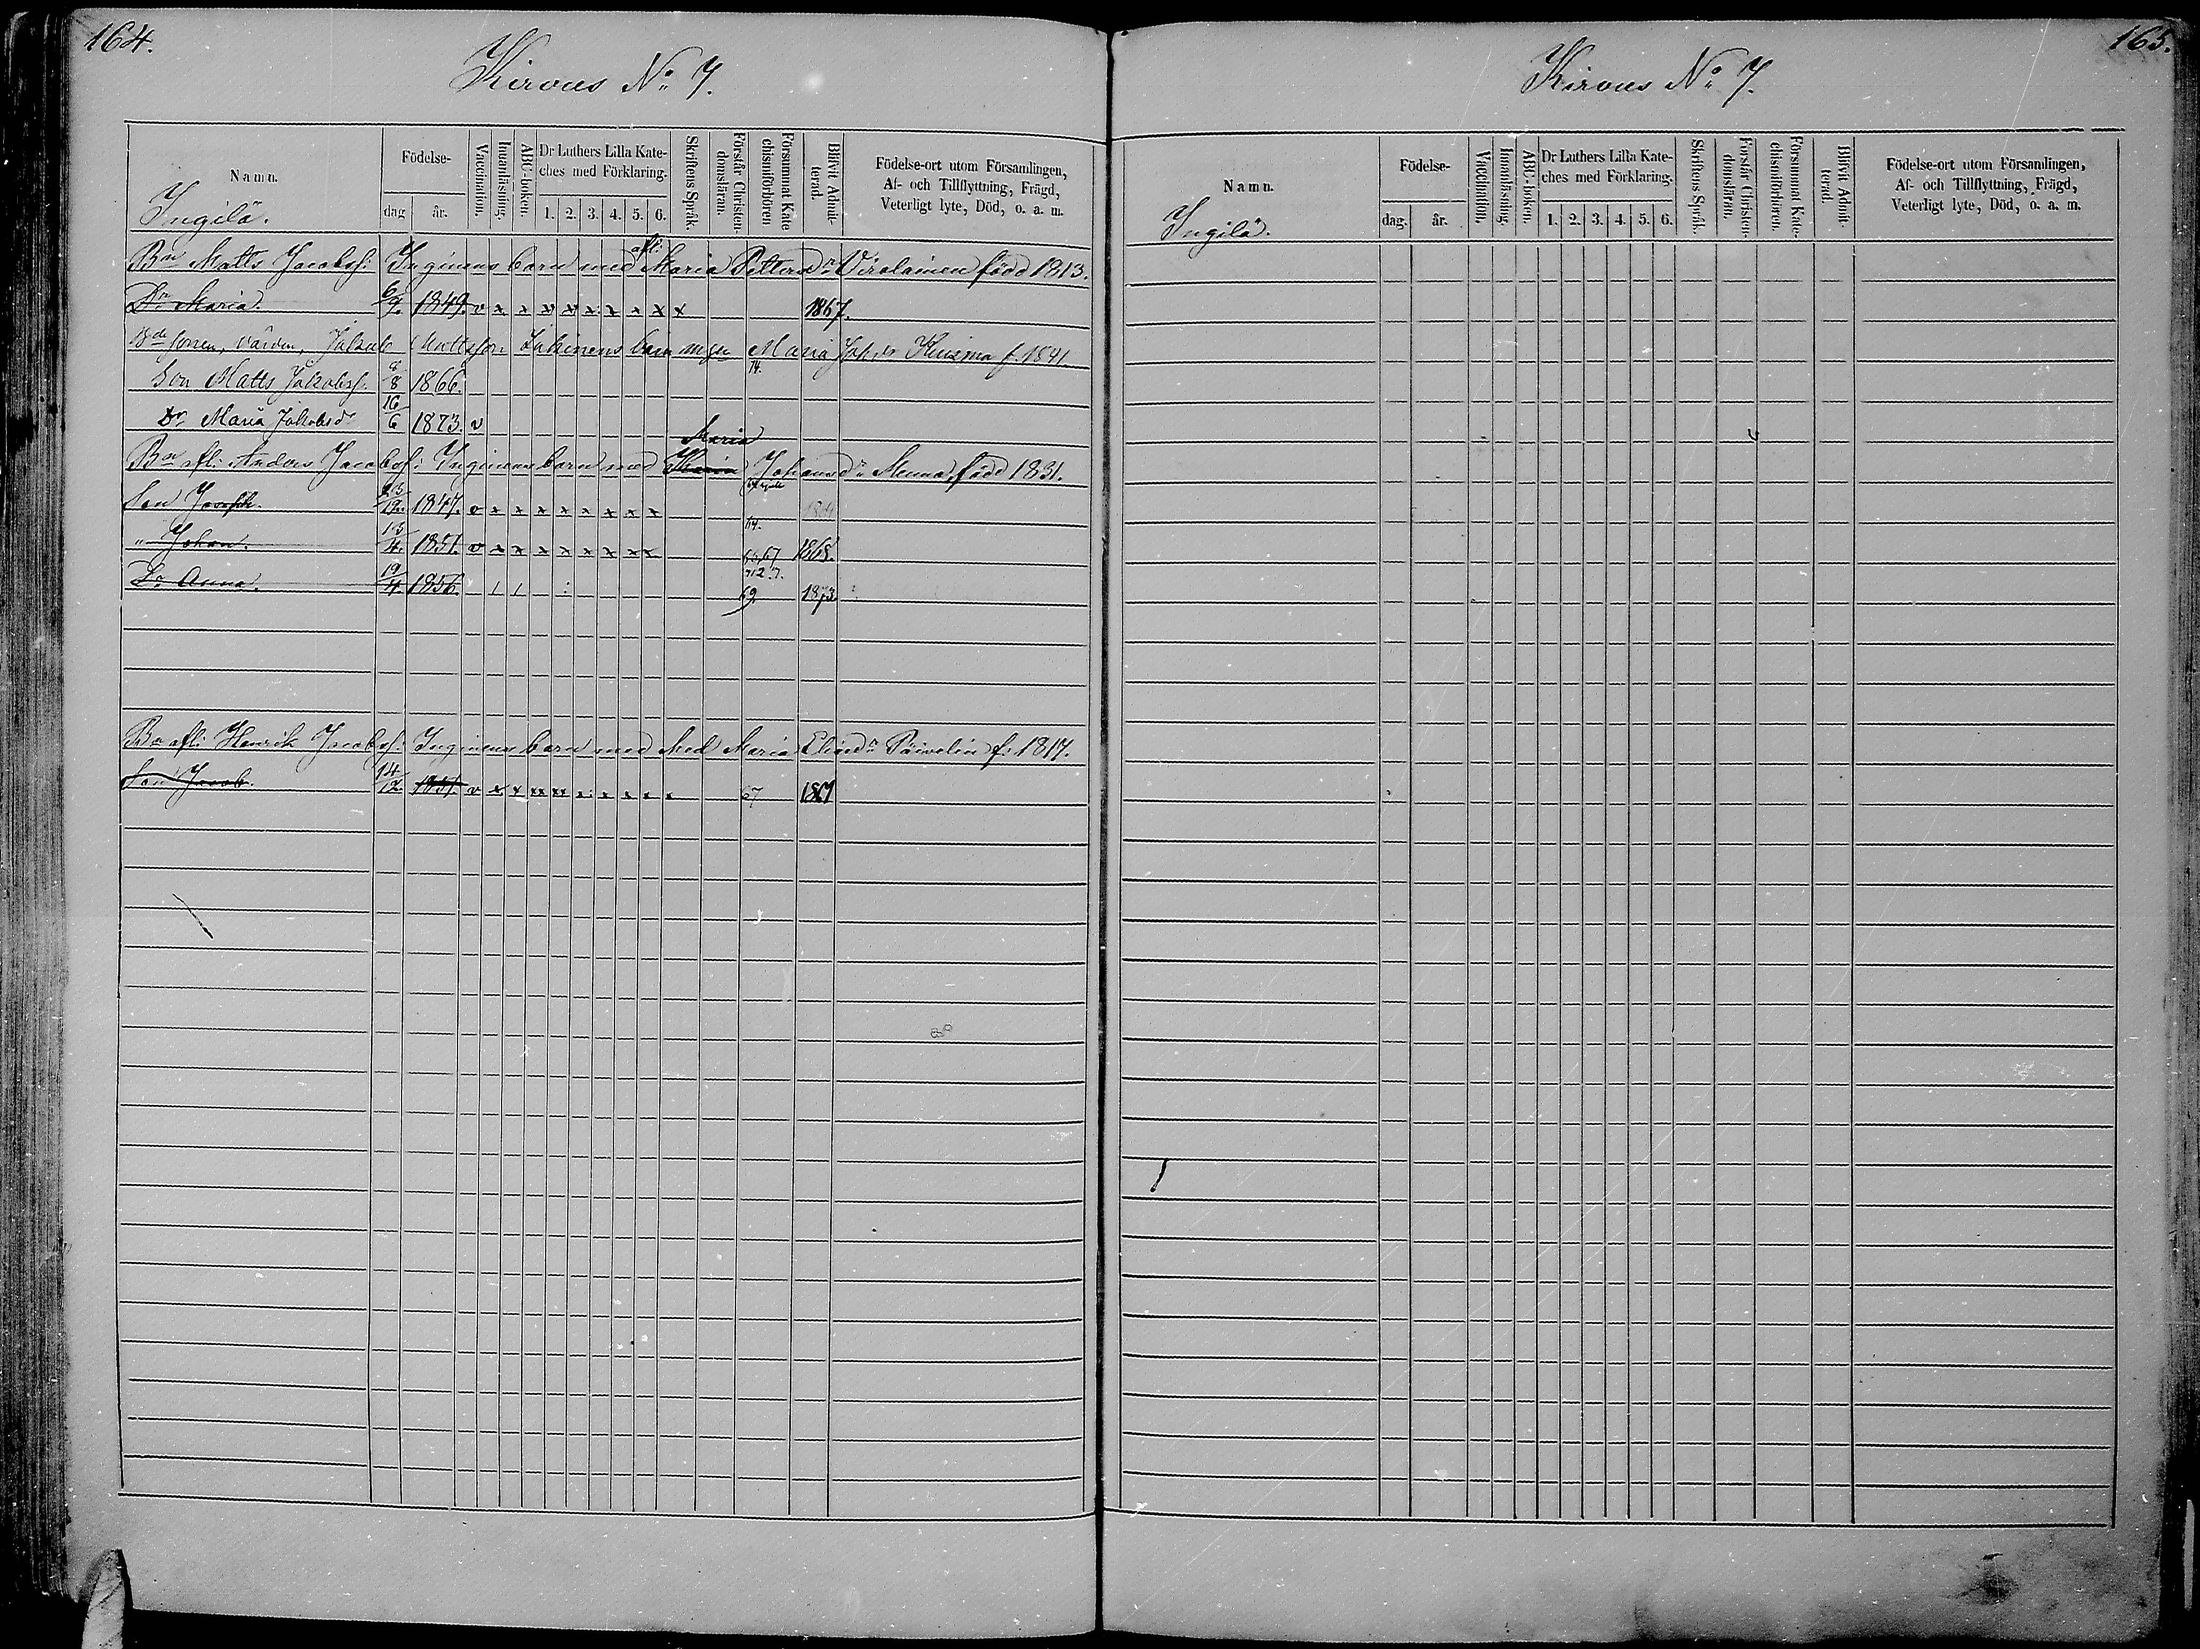 164.
Kirvus No 7.
Namn.
Födelse-
dag
år.
Vaccination.
Innanläsning.
ABC-boken.
Dr Luthers Lilla Kate-
ches med Förklaring.
1. 2. 3. 4. 5. 6.
Skriftens Språk.
Förstår Christen-
domsläran.
Försummat Kate
chismiförhören
Blifvit Admit-
terad.
Födelse-ort utom Församlingen,
Af- och Tillflyttning, Frägd,
Veterligt lyte, Död, o. a. m.
Ingilä.
afl:
Bn Matts Jacobss: Inginens barn med Maria Pettersdr Virolainen född 1813.
Dr Maria. 6/9. 1849. v x x x x x x x x x 1867.
sonen, värden, Jakob Mattsson barn med Maria Johdr Kuisma f. 1841
Son Matts Jakobss. 8/8 1866. 74.
Dr Maria Jakobsdr 16/6 1873. v
Maria
Bn afl: Anders Jacobss: Inginens barn med Johansdr född 1831.
Son Joseph. 1847. v x x x x x x x x
" Johan. 13/4. 1851. v x x x x x x x x 67 1868.
Dr Anna. 19/4. 1856. / / 69. 1873.
Bn afl: Henrik Jacobss: Inginens barn med Med Maria Eliasdr Päivelin f: 1817.
Son Jacob. 14/12. 1851. v x x xx xx x x x x x 67 1867
165.
Kirvus No 7.
Namn.
Födelse-
dag.
år.
Vaccination.
Innanläsning.
ABC-boken.
Dr Luthers Lilla Kate-
ches med Förklaring.
1. 2. 3. 4. 5. 6.
Skriftens Språk.
Förstår Christen-
domsläran.
Försummat Kate-
chismiförhören.
Blifvit Admit-
terad.
Födelse-ort utom Församlingen,
Af- och Tillflyttning, Frägd,
Veterligt lyte, Död, o. a. m.
Ingilä.